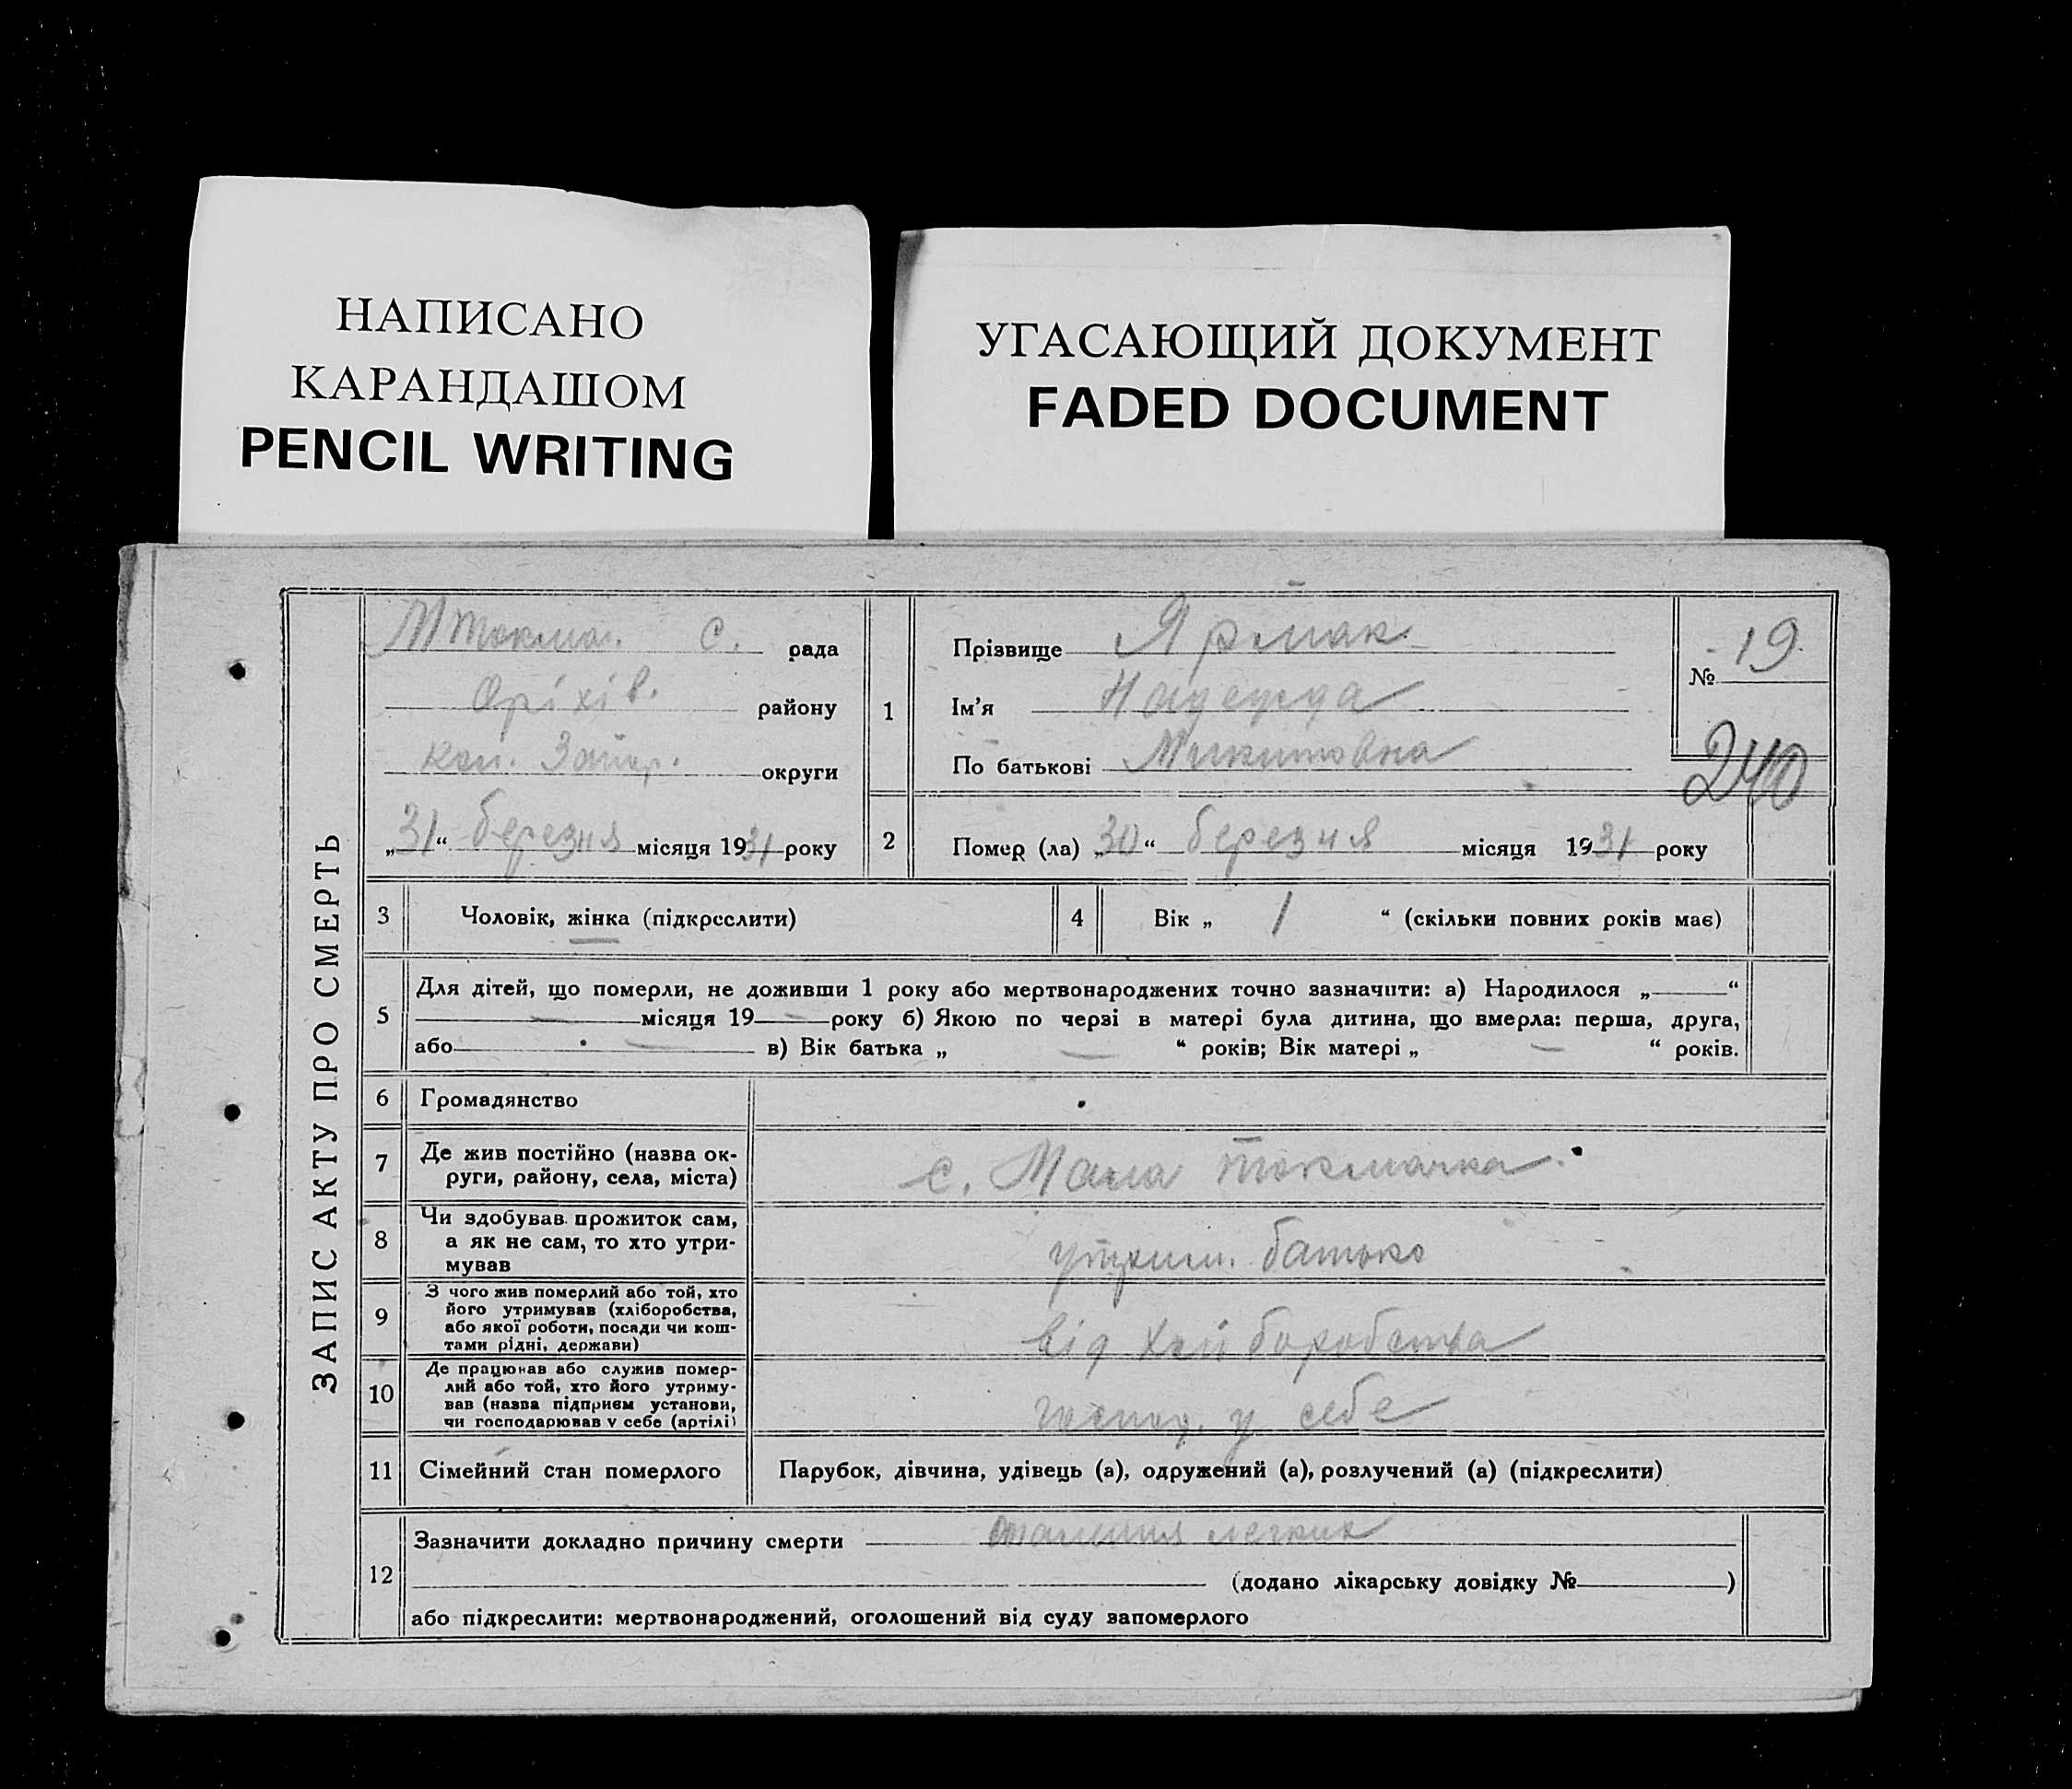 НАПИСАНО
КАРАНДАШОМ
PENCIL WRITING
УГАСАЮЩИЙ ДОКУМЕНТ
FADED DOCUMENT
ЗАПИС АКТУ ПРО СМЕРТЬ
МТокма. С. рада
Оріхів. району
Запор. округи
„31“ березня місяця 1931 року
1
Прізвище Ярмак
Ім'я Надежда
По батькові Микитовна
№ 19
240
2 Помер (ла) „30“ березня місяця 1931 року
3 Чоловік, жінка (підкреслити)
4 Вік „ 1 “ (скільки повних років має)
5 Для дітей, що померли, не доживши 1 року або мертвонароджених точно зазначити: а) Народилося „ — “
— місяця 19 — року б) Якою по черзі в матері була дитина, що вмерла: перша, друга,
або — в) Вік батька „ — “ років; Вік матері „ — “ років.
6 Громадянство
7 Де жив постійно (назва ок-
руги, району, села, міста)
с. Мала Токмачка.
8 Чи здобував прожиток сам,
а як не сам, то хто утри-
мував
утрим. батько
9 З чого жив померлий або той, хто
його утримував (хліборобства,
або якої роботи, посади чи кош-
тами рідні, держави)
від хлі боробства
10 Де працював або служив помер-
лий або той, хто його утриму-
вав (назва підприєм установи,
чи господарював у себе (артілі)
господ. у себе
11 Сімейний стан померлого
Парубок, дівчина, удівець (а), одружений (а), розлучений (а) (підкреслити)
12 Зазначити докладно причину смерти легких
(додано лікарську довідку № )
або підкреслити: мертвонароджений, оголошений від суду запомерлого